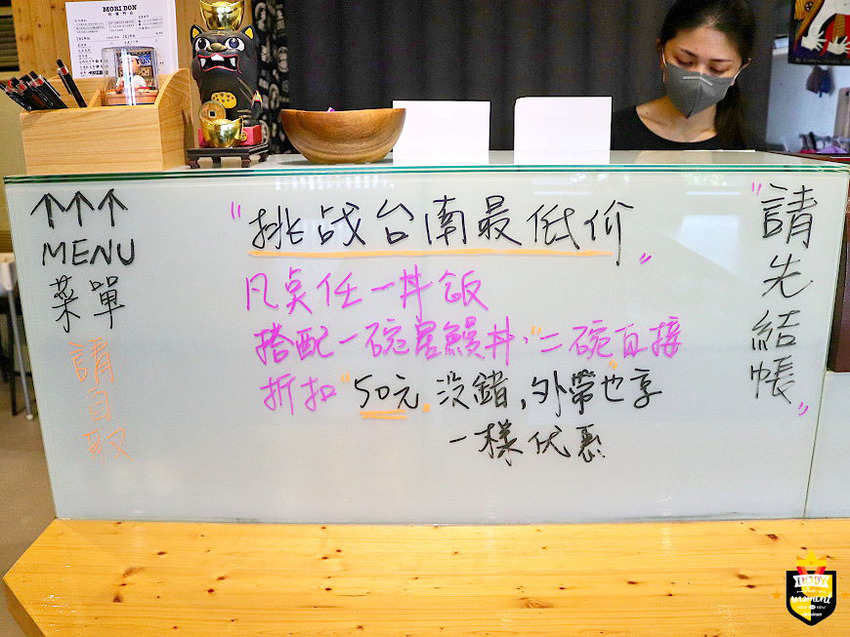 MORI DON
↑↑↑
MENU
菜單
請自取
"挑战台南最低价"
凡点任一丼飯
搭配一碗星鰻丼,"二碗直接
折扣"50元。没錯,外帶也享
一樣优惠
"請先結帳"
ENJOY
moment